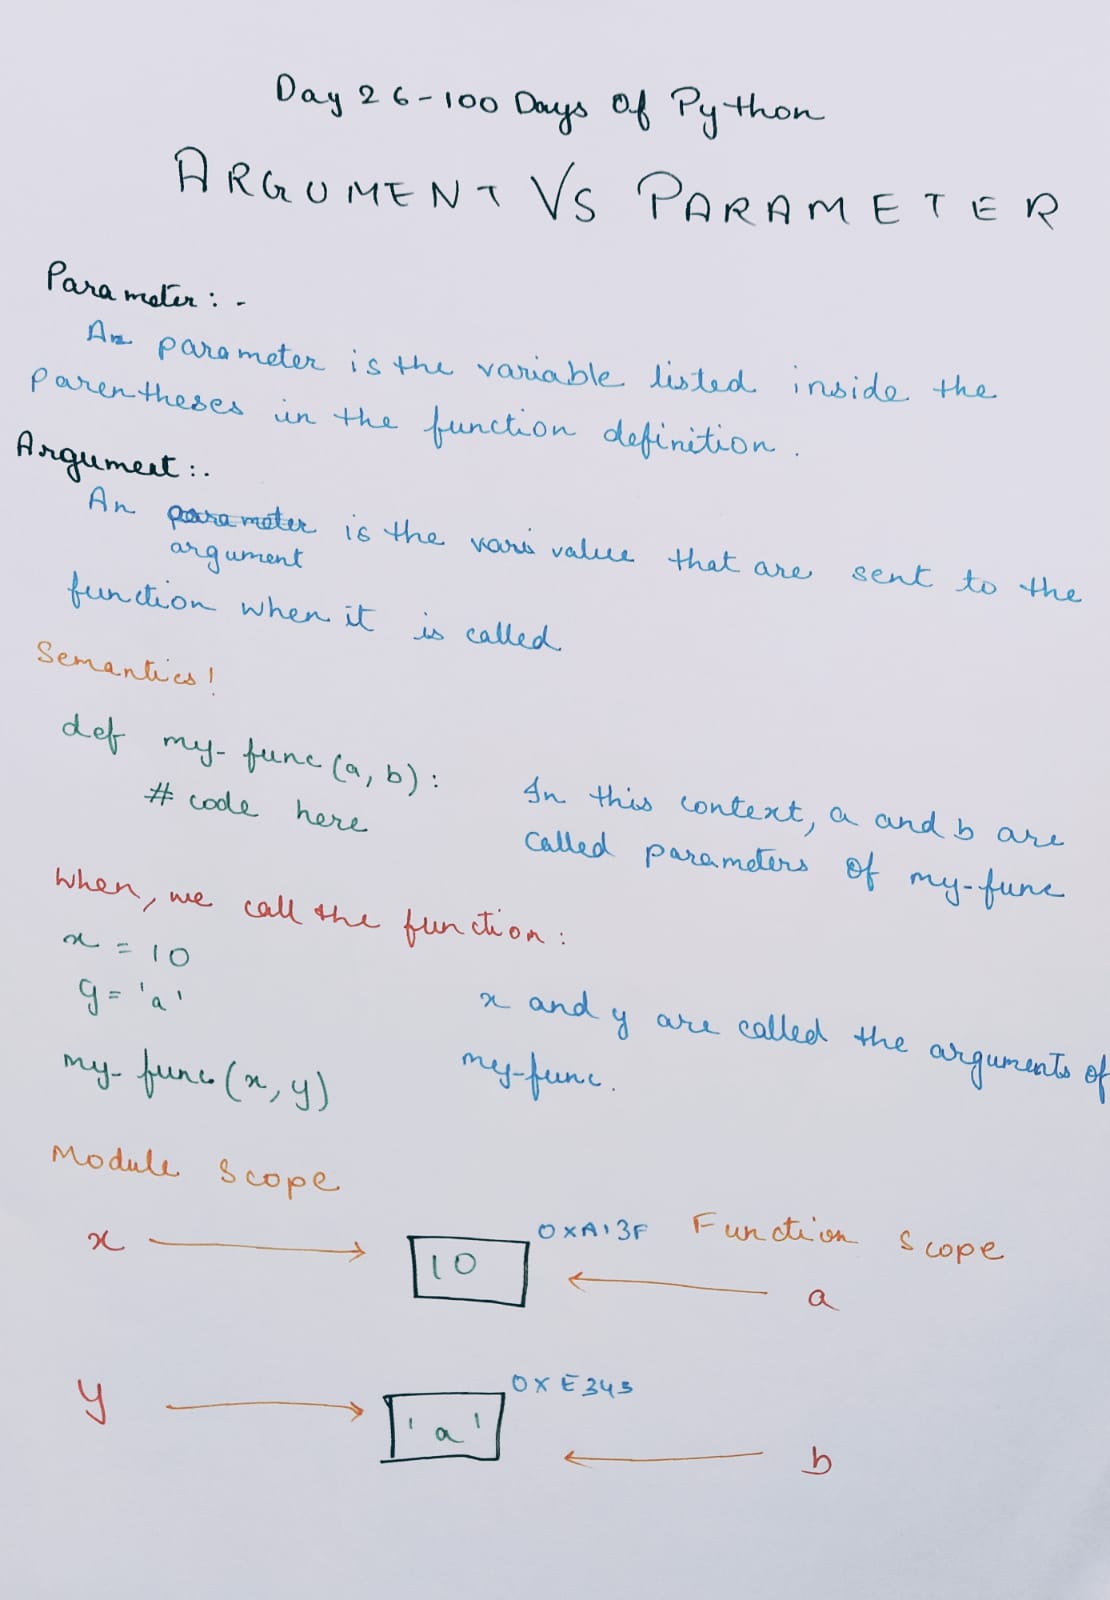 Day 26-100 Days Of Python
ARGUMENT VS PARAMETER
Parameter:-
An parameter is the variable listed inside the
parentheses in the function definition.
Argument:-
An parameter is the vari value that are sent to the
argument
function when it is called
Semantics!
def my-func(a,b):
# code here
In this context, a and b are
called parameters of my-func
When, we call the function:
x = 10
y = 'a'
x and y are called the arguments of
my-func(x,y)
my-func.
Module Scope
0XA13F Function Scope
x
10
a
0XE345
y
'a'
b